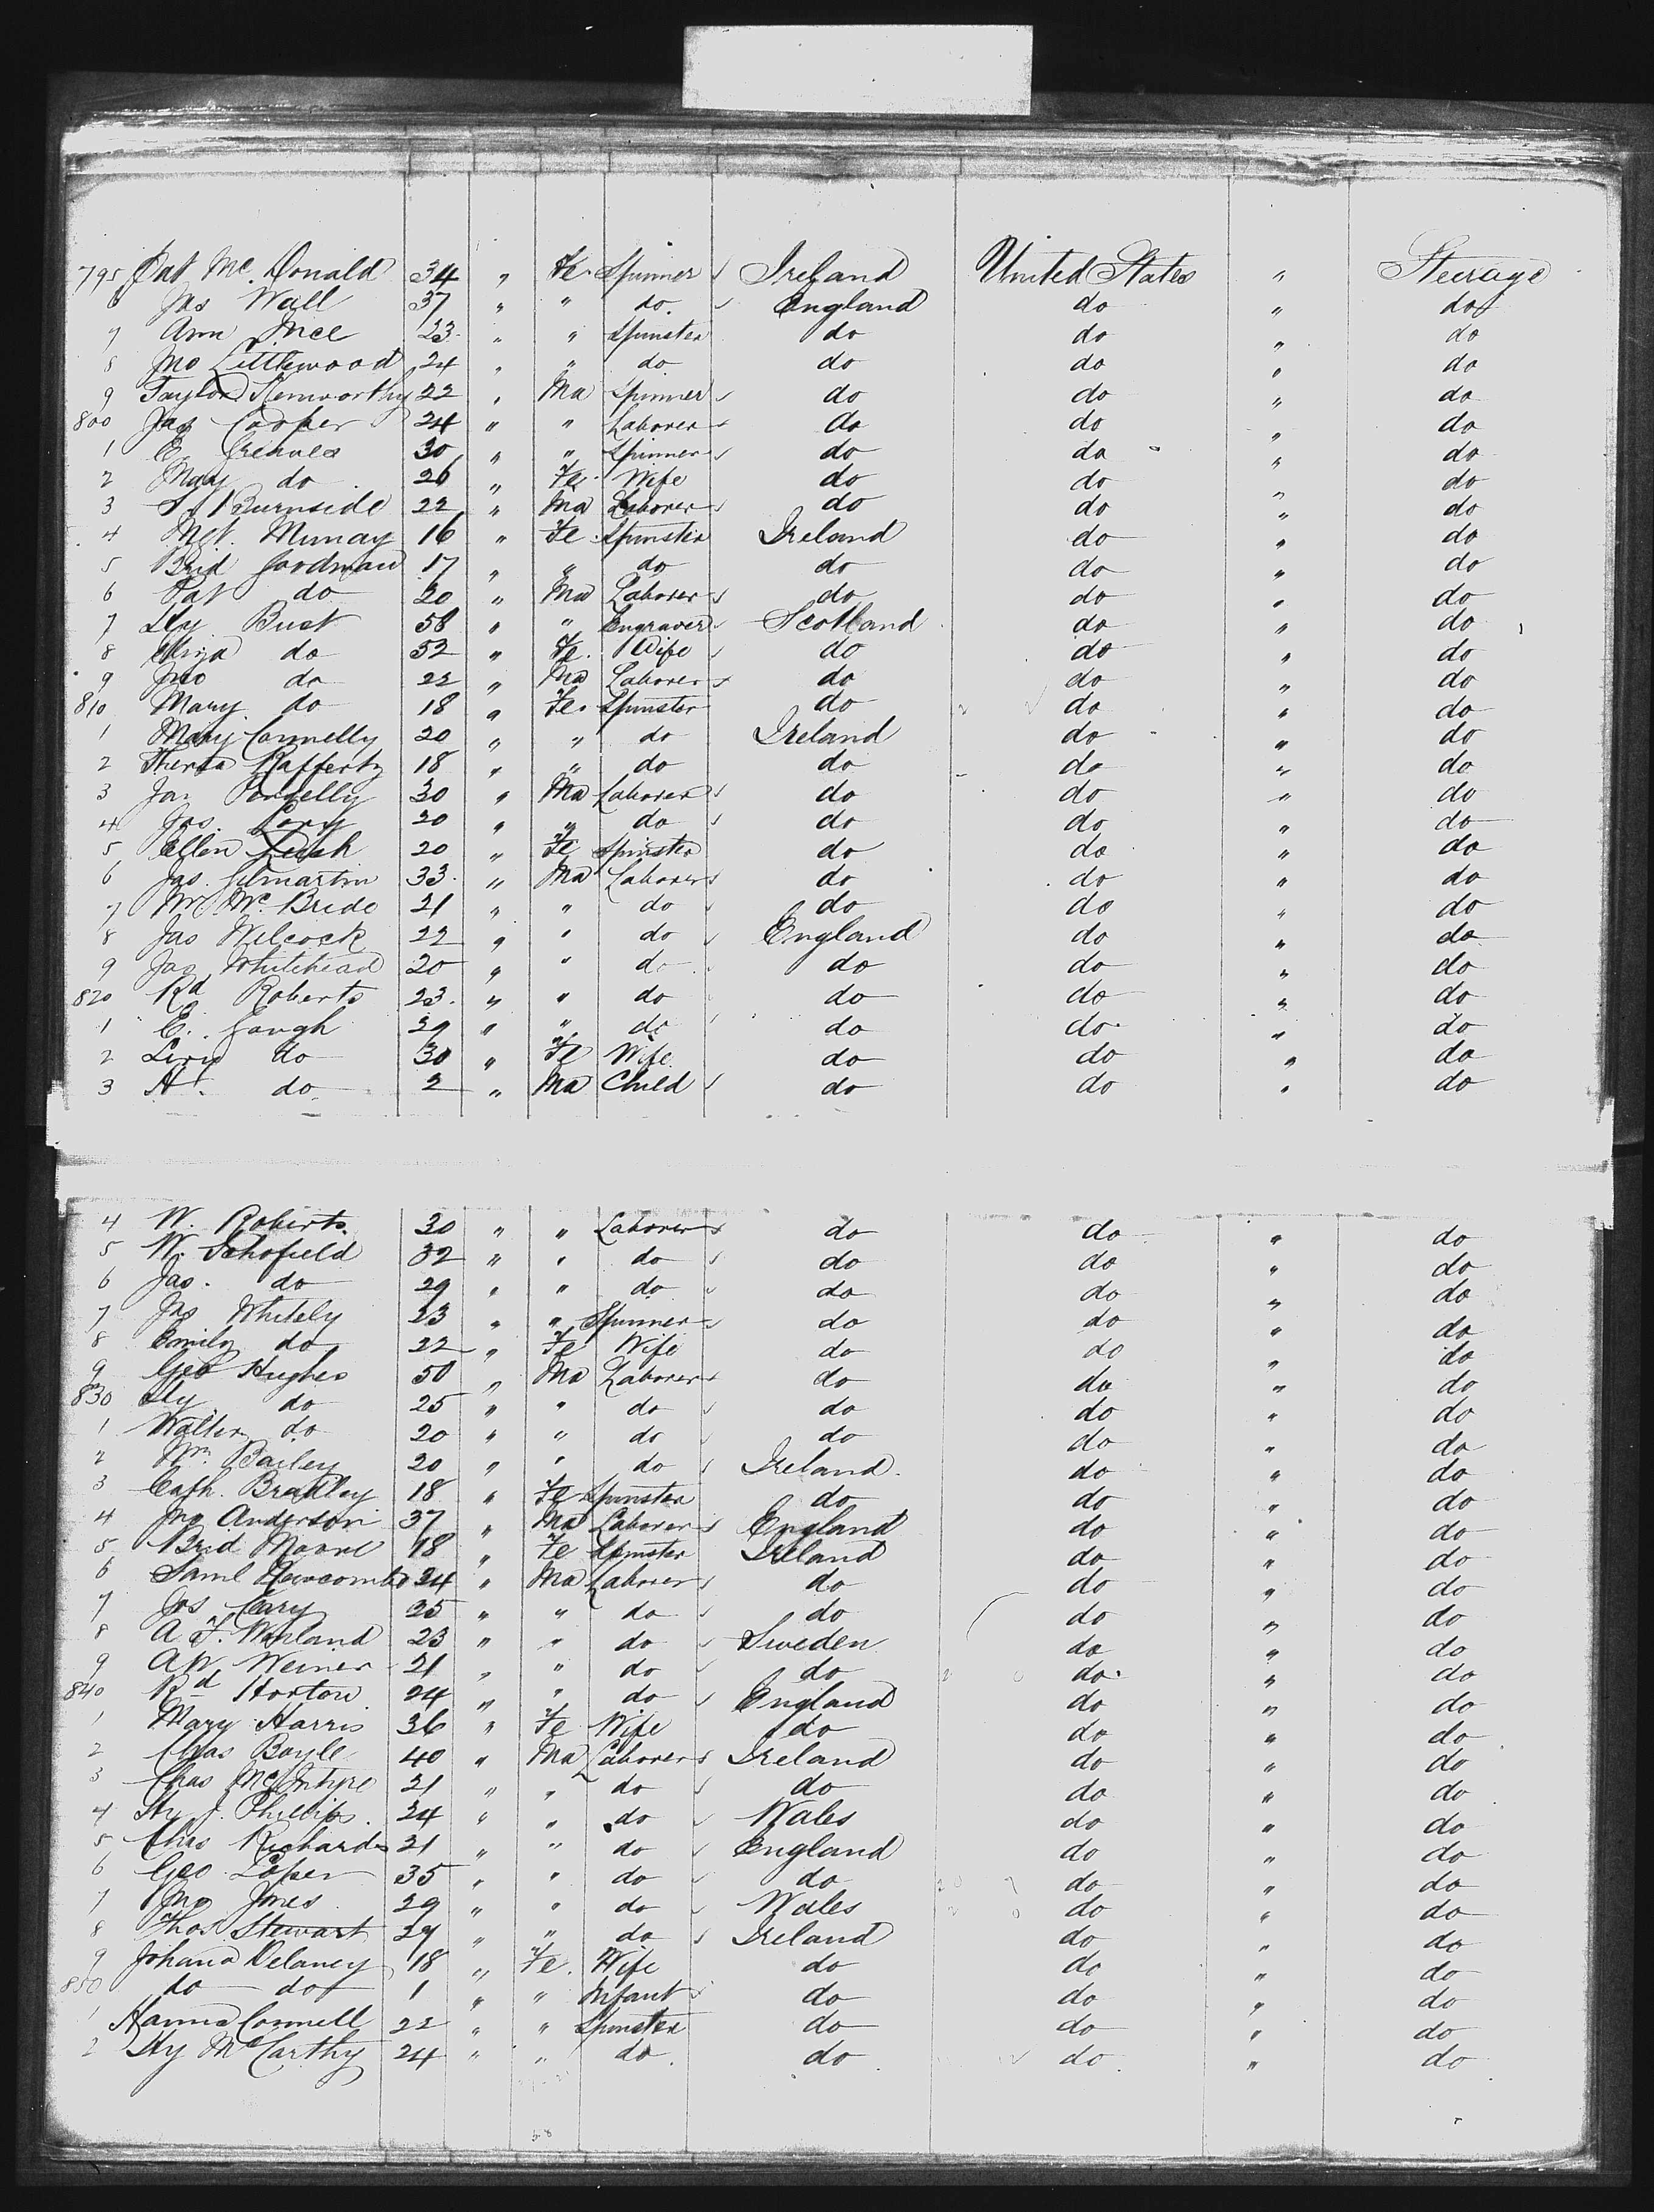 795 Pat Mc. Donald 34 " Fe. Spinner Ireland United States " Steerage
6 Jas Wall 37 " " do. England do " do
7 Ann Ince 23 " " Spinster do do " do
8 Jno Littlewood 24 " " do do do " do
9 Taylor Kenworthy 22 " Ma Spinner do do " do
800 Jas Cooper 24 " " Laborer do do " do
1 E. Greaves 30 " " Spinner do do " do
2 Mary do 26 " Fe. Wife do do " do
3 S. Burnside 22 " Ma Laborer do do " do
4 Mgt. Murray 16 " Fe. Spinster Ireland do " do
5 Brid Goodman 17 " " do do do " do
6 Pat do 20 " Ma Laborer do do " do
7 Hy Bust 58 " " Engraver Scotland do " do
8 Eliza do 52 " Fe. Wife do do " do
9 Jno do 22 " Ma Laborer do do " do
810 Mary do 18 " Fe. Spinster do do " do
1 Mary Connelly 20 " " do Ireland do " do
2 Theresa Rafferty 18 " " do do do " do
3 Jas Donnelly 30 " Ma Laborer do do " do
4 Jas. 20 " " do do do " do
5 Ellen Leech 20 " Fe Spinster do do " do
6 Jas. Gilmartin 33 " Ma Laborer do do " do
7 Wm McBride 21 " " do do do " do
8 Jas Wilcock 22 " " do England do " do
9 Jas Whitehead 20 " " do do do " do
820 Rd Roberts 23. " " do do do " do
1 E. Gough 29 " " do do do " do
2 do 30 " Fe Wife do do " do
3 A. do 2 " Ma Child do do " do
4 W. Roberts 30 " " Laborer do do " do
5 W. Schofield 32 " " do do do " do
6 Jas. do 29 " " do do do " do
7 Jas Whitely 23 " " Spinner do do " do
8 Emily do 22 " Fe Wife do do " do
9 Geo Hughes 50 " Ma Laborer do do " do
830 Hy do 25 " " do do do " do
1 Walter do 20 " " do do do " do
2 Wm. Bailey 20 " " do Ireland. do " do
3 Cath. Bradley 18 " Fe Spinster do do " do
4 Jno Anderson 37 " Ma Laborer England do " do
5 Brid Moore 18 " Fe Spinster Ireland do " do
6 Saml Newcombe 24 " Ma Laborer do do " do
7 Jos Cary 25 " " do do do " do
8 A. F. Warland 23 " " do Sweden do " do
9 A W Weiner 21 " " do do do " do
840 Rd Horton 24 " " do England do " do
1 Mary Harris 36 " Fe Wife do do " do
2 Chas Boyle 40 " Ma Laborer Ireland do " do
3 Chas McIntyre 21 " " do do do " do
4 Hy J. Phillips. 24 " " do Wales do " do
5 Chas Richards 21 " " do England do " do
6 Geo Loper 35 " " do do do " do
7 Jno Jones 29 " " do Wales do " do
8 Thos Stewart 39 " " do Ireland do " do
9 Johana Delaney 18 " Fe. Wife do do " do
850 do do 1 " " Infant do do " do
1 Hanna Connell 22 " " Spinster do do " do
2 Hy McCarthy 24 " " do. do do " do